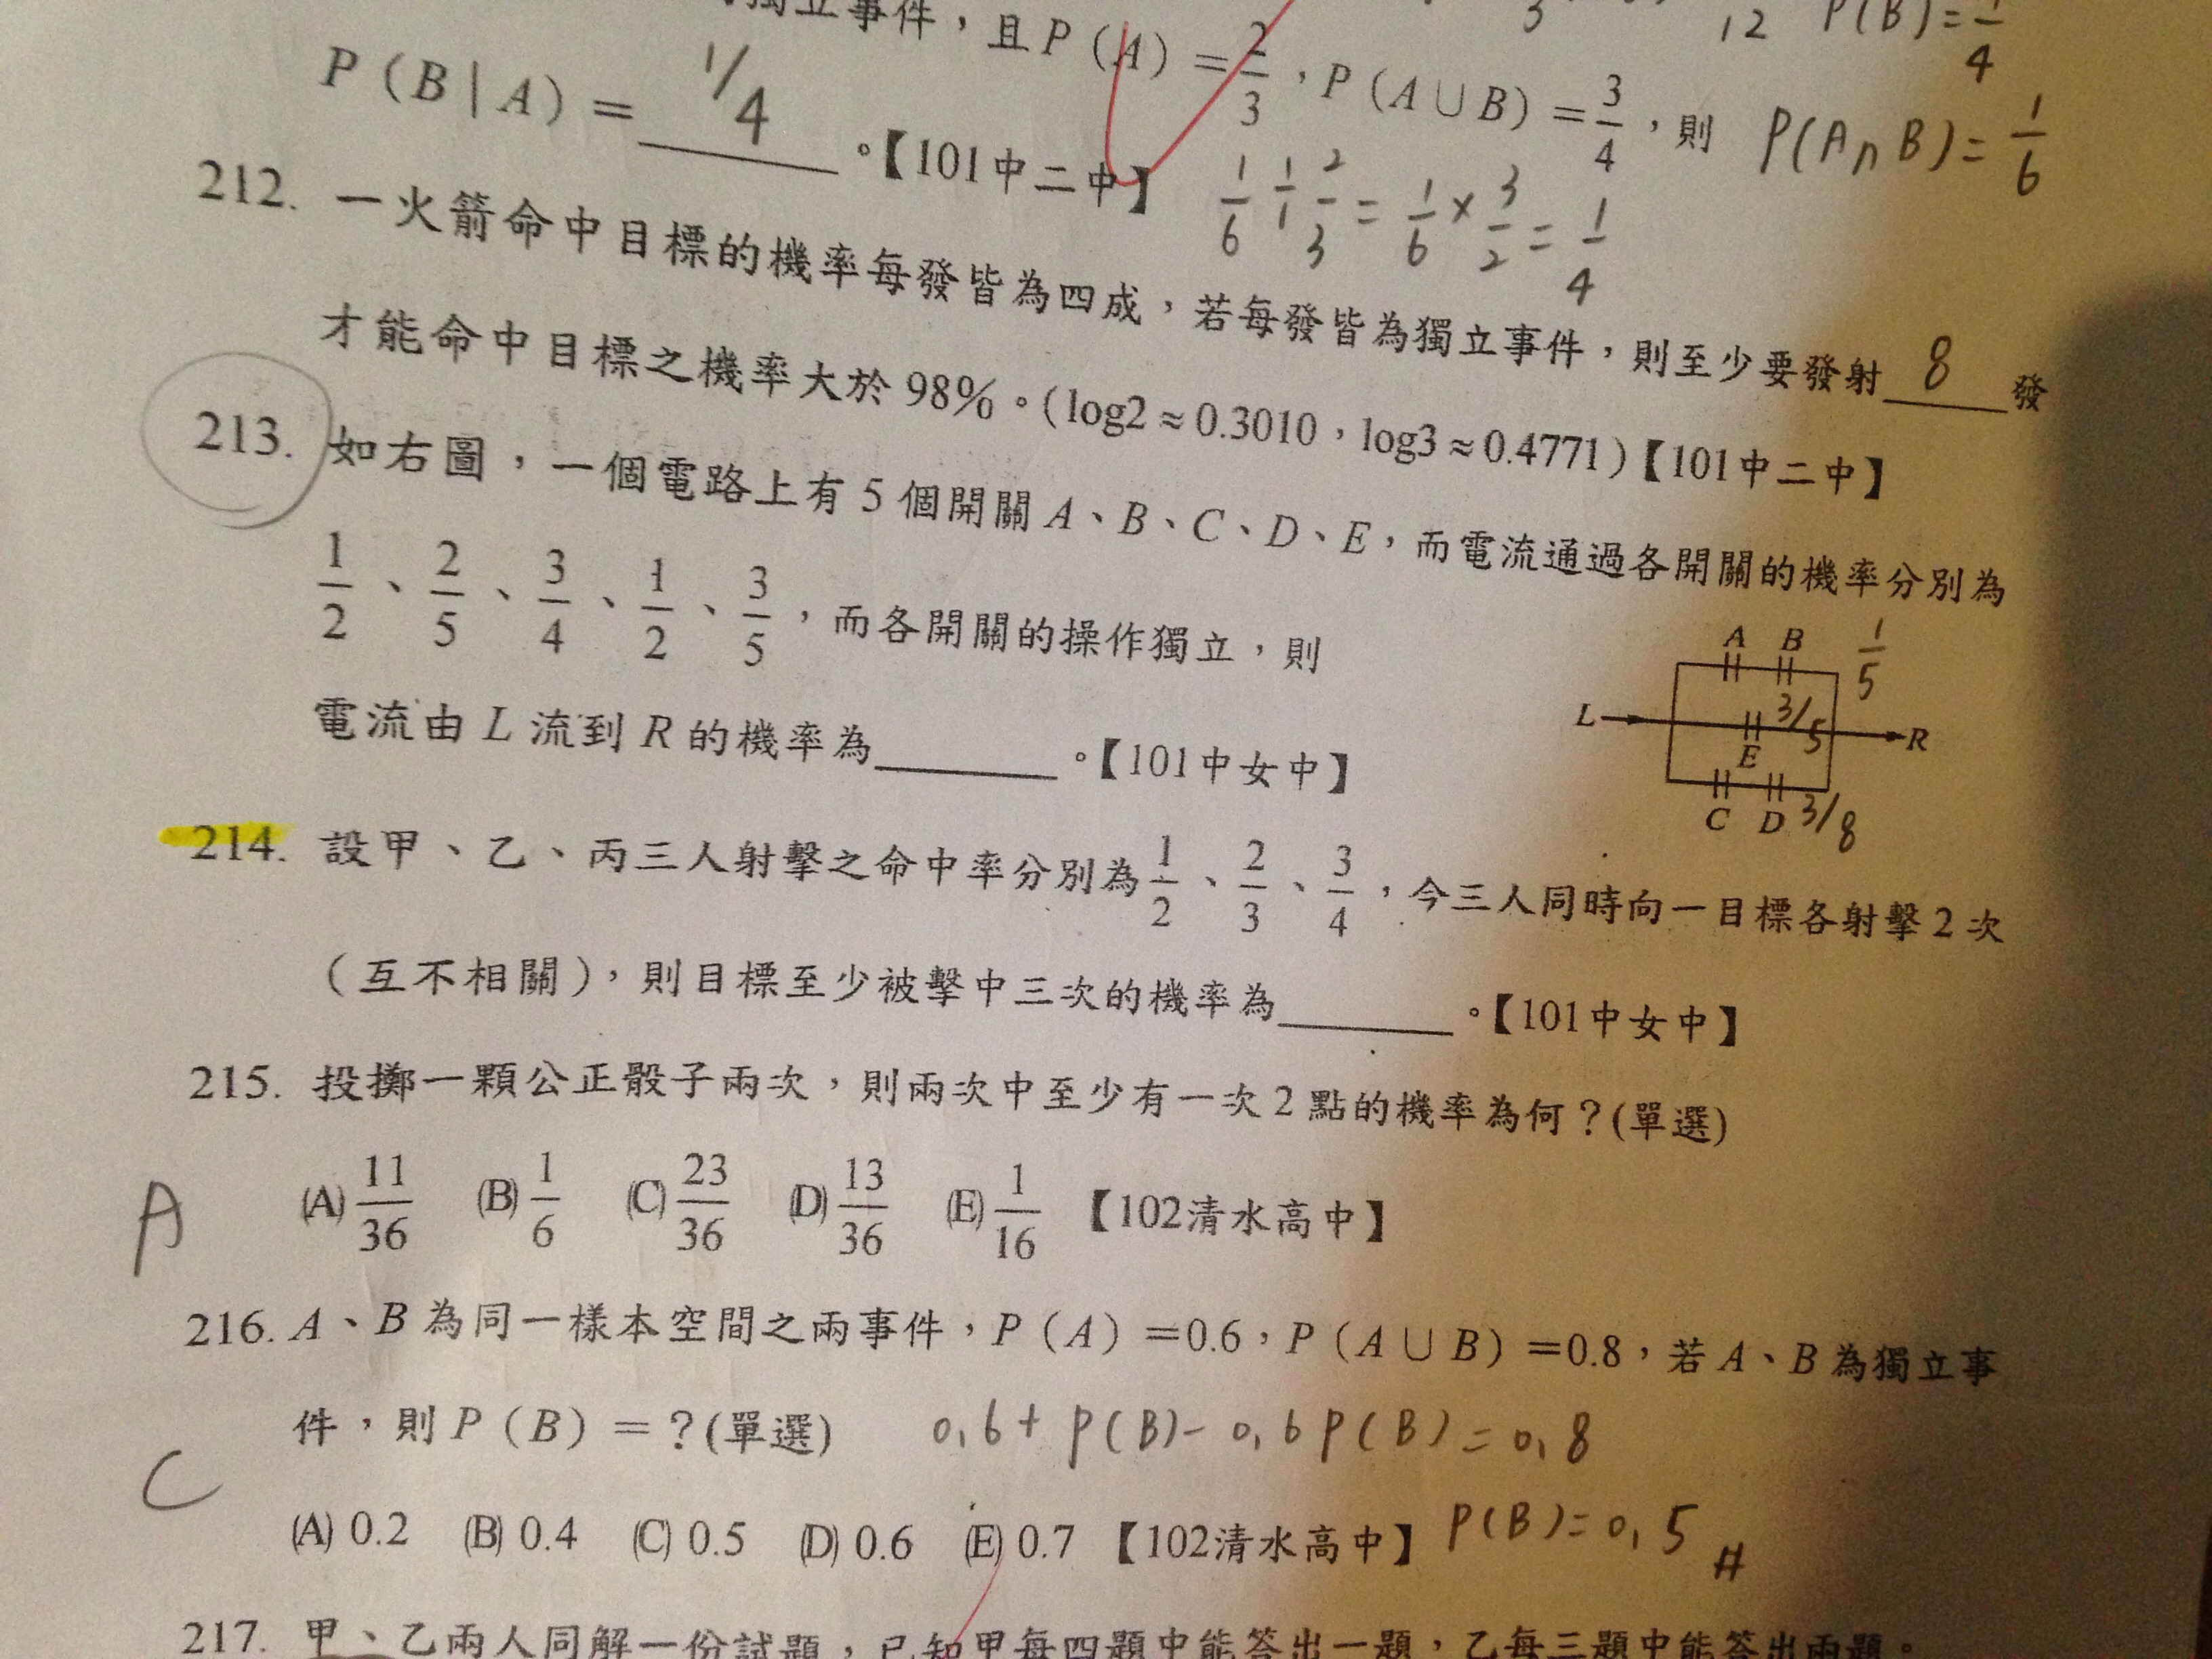 獨立事件，且 P（A）＝2/3，P（A∪B）＝3/4，則
3
12 P(B)=1/4
P（B｜A）＝ 1/4 。【101中二中】
P(A∩B)=1/6
1/6 ÷ 2/3 = 1/6 × 3/2 = 1/4
212. 一火箭命中目標的機率每發皆為四成，若每發皆為獨立事件，則至少要發射 8 發
才能命中目標之機率大於 98%。(log2≈0.3010，log3≈0.4771)【101中二中】
213. 如右圖，一個電路上有 5 個開關 A、B、C、D、E，而電流通過各開關的機率分別為
1/2、2/5、3/4、1/2、3/5，而各開關的操作獨立，則
電流由 L 流到 R 的機率為________。【101中女中】
A B 1/5
L 3/5 R
E
C D 3/8
214. 設甲、乙、丙三人射擊之命中率分別為 1/2、2/3、3/4，今三人同時向一目標各射擊 2 次
（互不相關），則目標至少被擊中三次的機率為________。【101中女中】
215. 投擲一顆公正骰子兩次，則兩次中至少有一次 2 點的機率為何？(單選)
A (A) 11/36 (B) 1/6 (C) 23/36 (D) 13/36 (E) 1/16 【102清水高中】
216. A、B 為同一樣本空間之兩事件，P（A）＝0.6，P（A∪B）＝0.8，若 A、B 為獨立事
件，則 P（B）＝？(單選) 0.6+P(B)-0.6P(B)=0.8
C (A) 0.2 (B) 0.4 (C) 0.5 (D) 0.6 (E) 0.7 【102清水高中】 P(B)=0.5 #
217. 甲、乙兩人同解一份試題，已知甲每四題中能答出一題，乙每三題中能答出兩題。